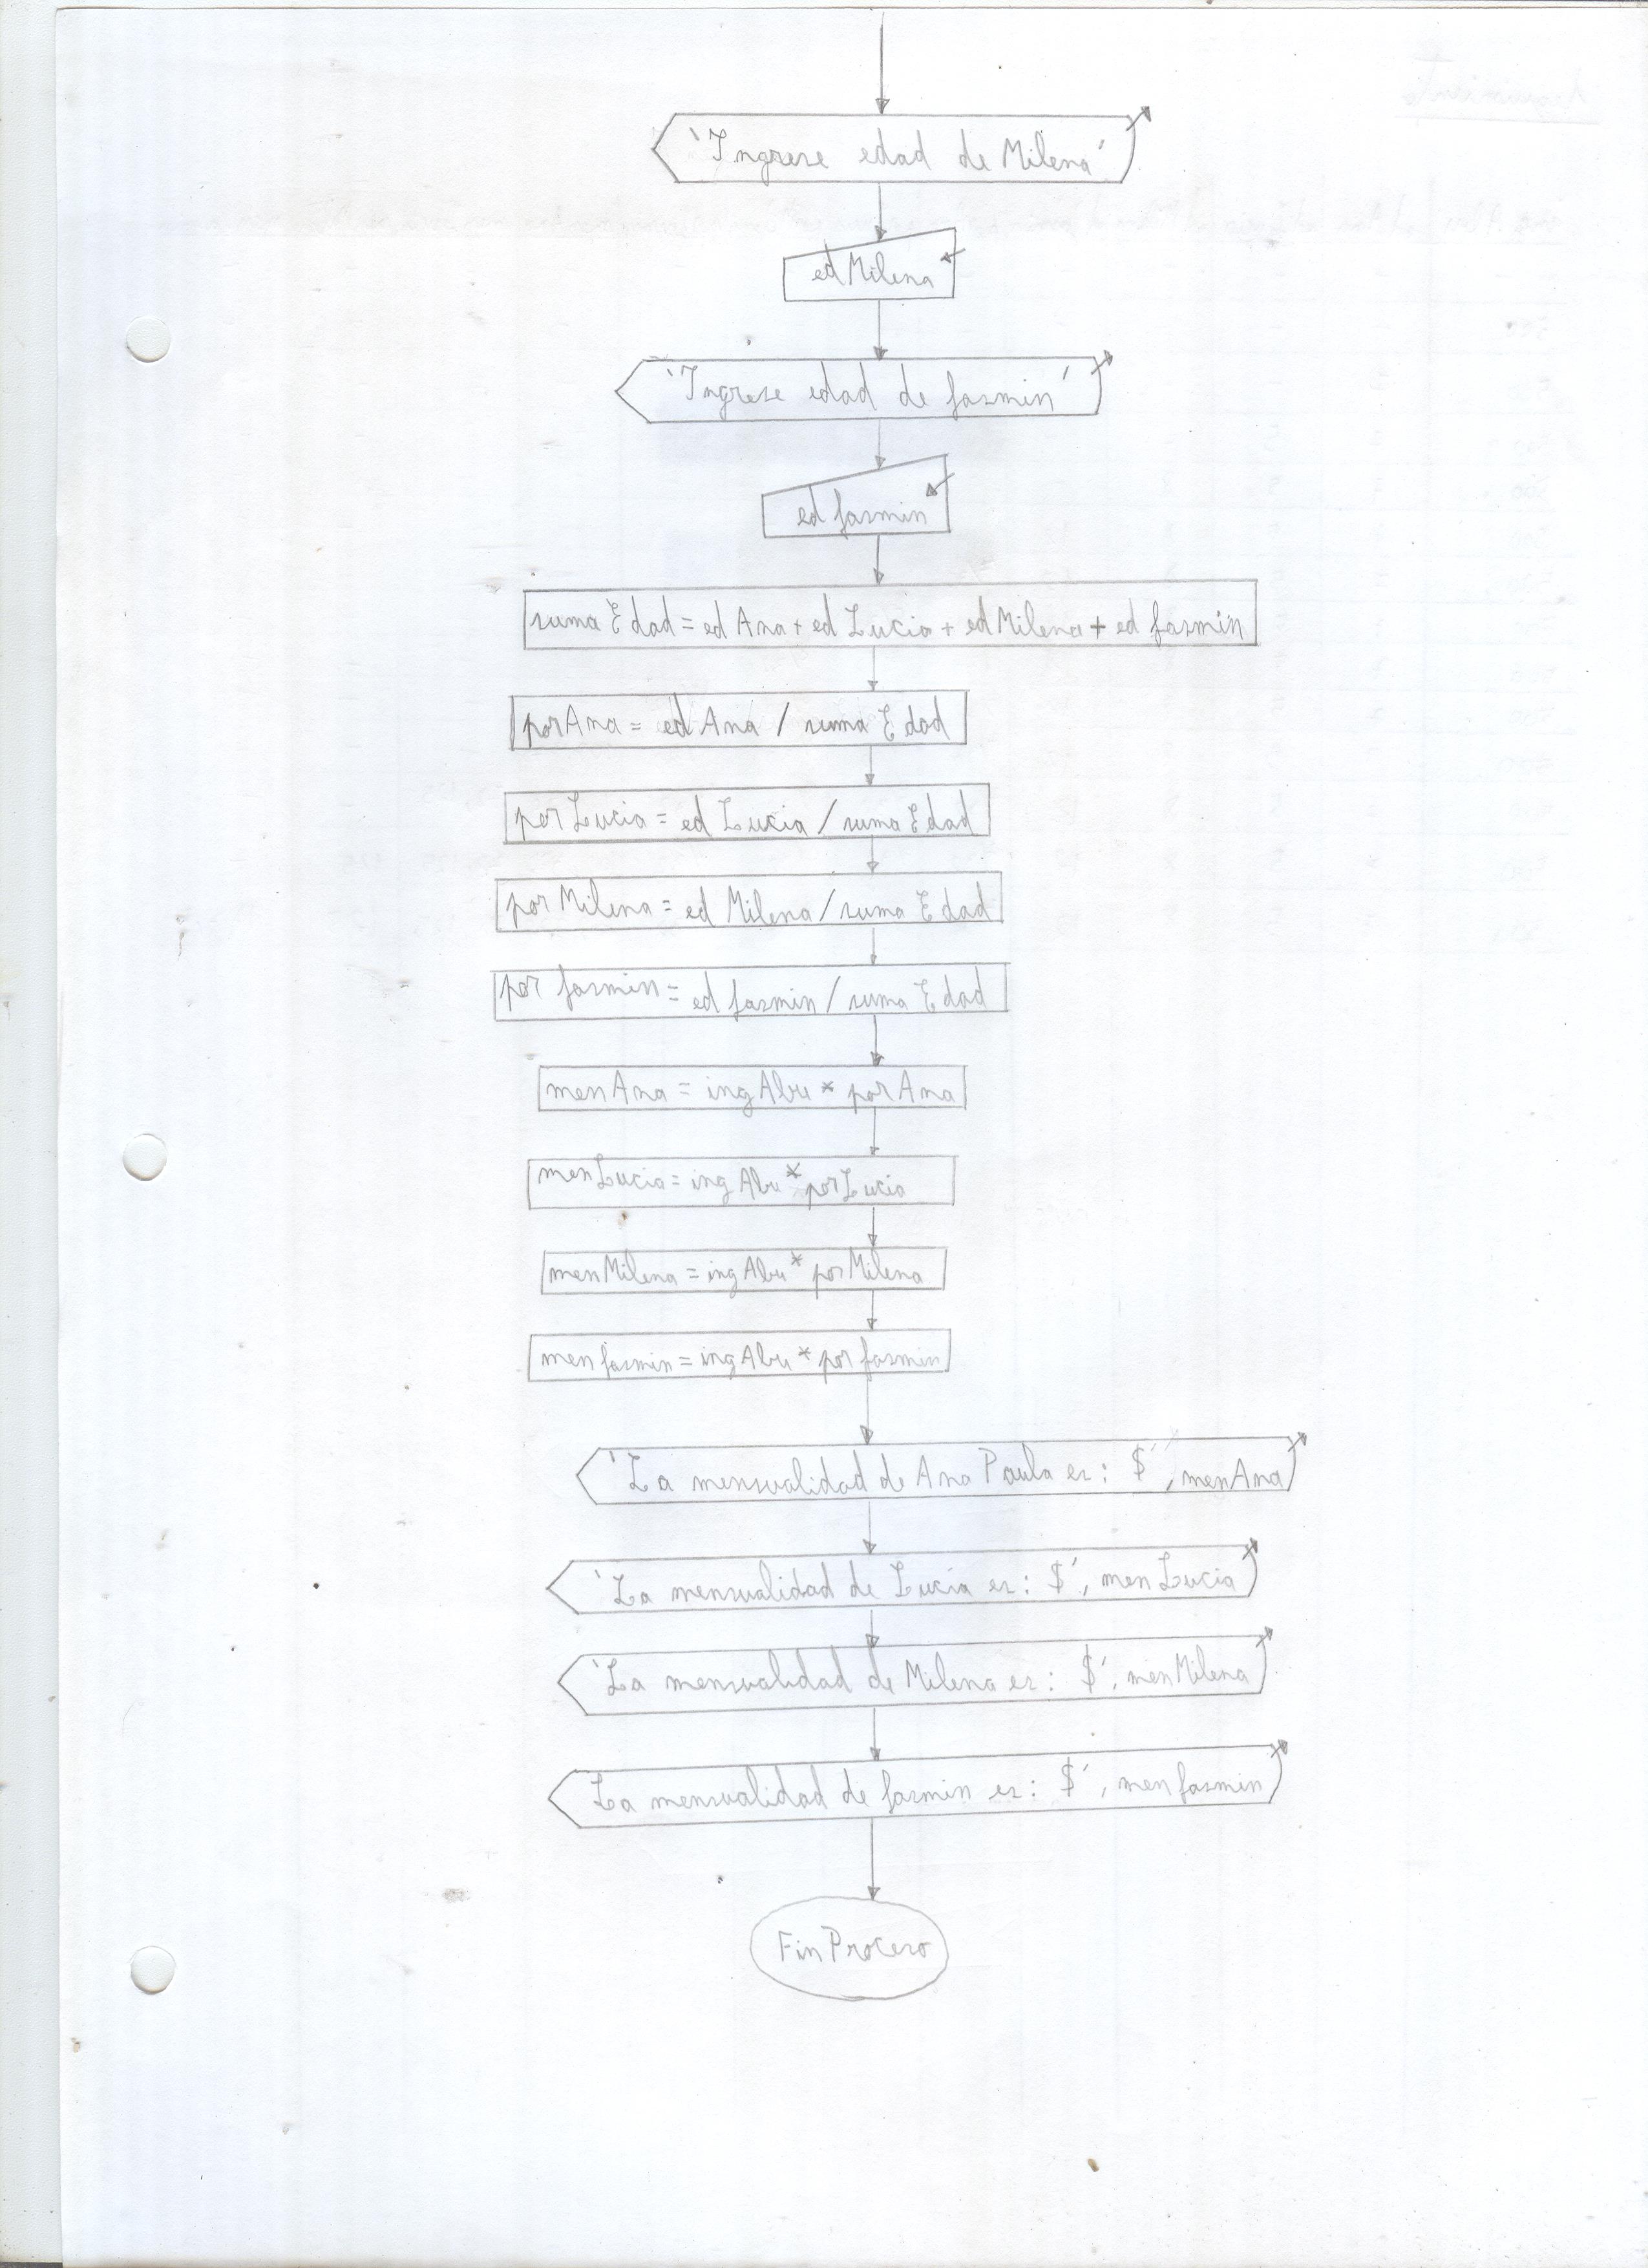 'Ingrese edad de Milena'
edMilena
'Ingrese edad de Jasmin'
ed Jasmin
suma Edad = ed Ana + ed Lucia + edMilena + ed Jasmin
porAna = ed Ana / suma Edad
porLucia = ed Lucia / suma Edad
porMilena = ed Milena / suma Edad
por Jasmin = ed Jasmin / suma Edad
menAna = ingAbu * porAna
menLucia = ingAbu * porLucia
menMilena = ingAbu * porMilena
menJasmin = ingAbu * por Jasmin
'La mensualidad de Ana Paula es: $', menAna
'La mensualidad de Lucia es: $', menLucia
'La mensualidad de Milena es: $', menMilena
La mensualidad de Jasmin es: $', menJasmin
FinProceso